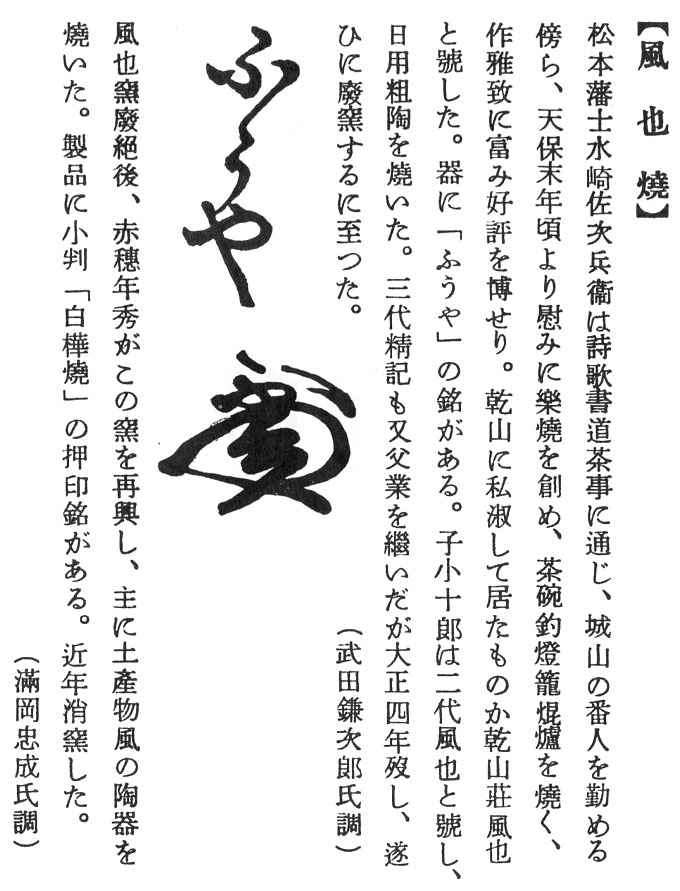 【風也燒】
松本藩士水崎佐次兵衞は詩歌書道茶事に通じ、城山の番人を勤める
傍ら、天保末年頃より慰みに樂燒を創め、茶碗釣燈籠焜爐を燒く、
作雅致に富み好評を博せり。乾山に私淑して居たものか乾山莊風也
と號した。器に「ふうや」の銘がある。子小十郎は二代風也と號し、
日用粗陶を燒いた。三代精記も又父業を繼いだが大正四年歿し、遂
ひに廢窯するに至つた。
（武田鎌次郎氏調）
ふうや
風也窯廢絕後、赤穗年秀がこの窯を再興し、主に土產物風の陶器を
燒いた。製品に小判「白樺燒」の押印銘がある。近年消窯した。
（滿岡忠成氏調）